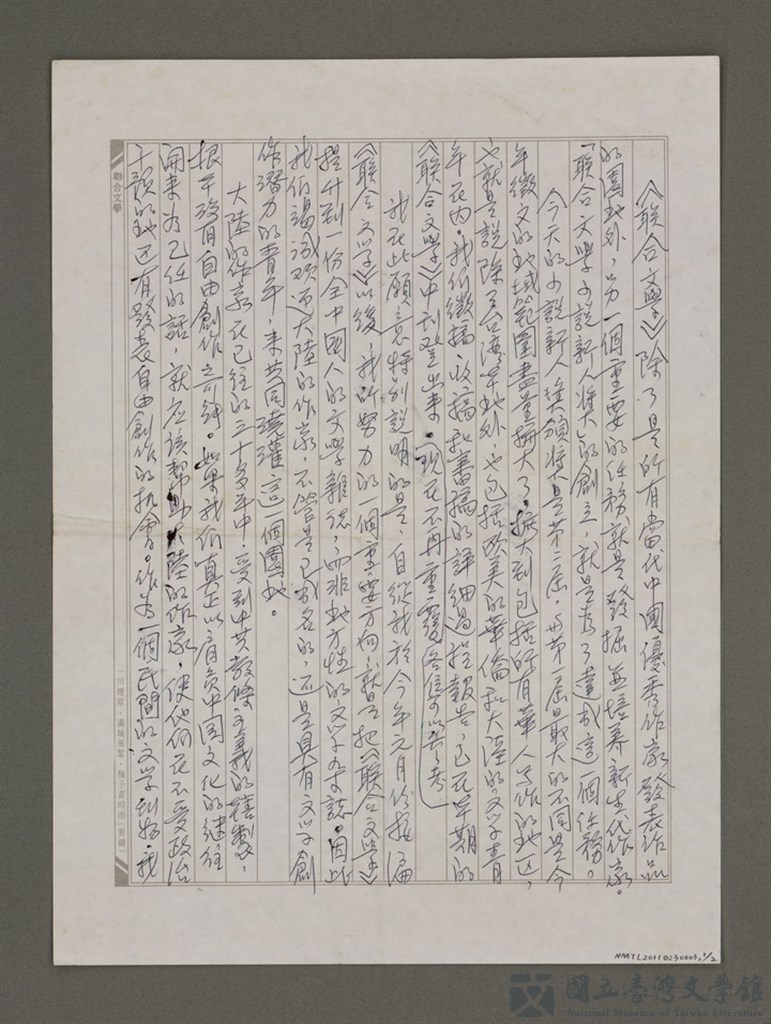 《聯合文學》除了是所有當代中國優秀作家發表作品
的園地外，另一個重要的任務就是發掘並培养新生代作家。
「聯合文學小說新人獎」的創立，就是為了達成這一個任務。
今天的小說新人獎頒獎是第二屆，与第一屆最大的不同是今
年徵文的地域範圍盡量擴大了，擴大到包括所有華人寫作的地区，
也就是說除了台灣本地外，也包括欧美的華僑和大陸的文学青
年在内。我们徵稿、收稿和審稿的詳細過程報告，已在本期的
《聯合文學》中刊登出來。現在不再重覆，各位可以参考。
我在此願意特别說明的是，自從我於今年元月份接編
《聯合文学》以後，我所努力的一個重要方向，就是把《聯合文學》
提升到一份全中國人的文學雜誌，而非地方性的文学杂誌。因此
我们竭诚欢迎大陸的作家，不管是已成名的，还是具有文学創
作潛力的青年，来共同澆灌這一個園地。
大陸的作家在已往的三十多年中，受到中共教條主義的箝製，
根本没有自由創作之可能。如果我们真正以肩負中国文化的継往
開来为己任的話，就应該幫助大陸的作家，使他们在不受政治
干預的地区有發表自由創作的机會。作为一個民間的文学刊物，我
聯合文學
一川煙草，滿城風絮，梅子黃時雨（賀鑄）
NMTL20110230003, 1/2
國立臺灣文學館
National Museum of Taiwan Literature